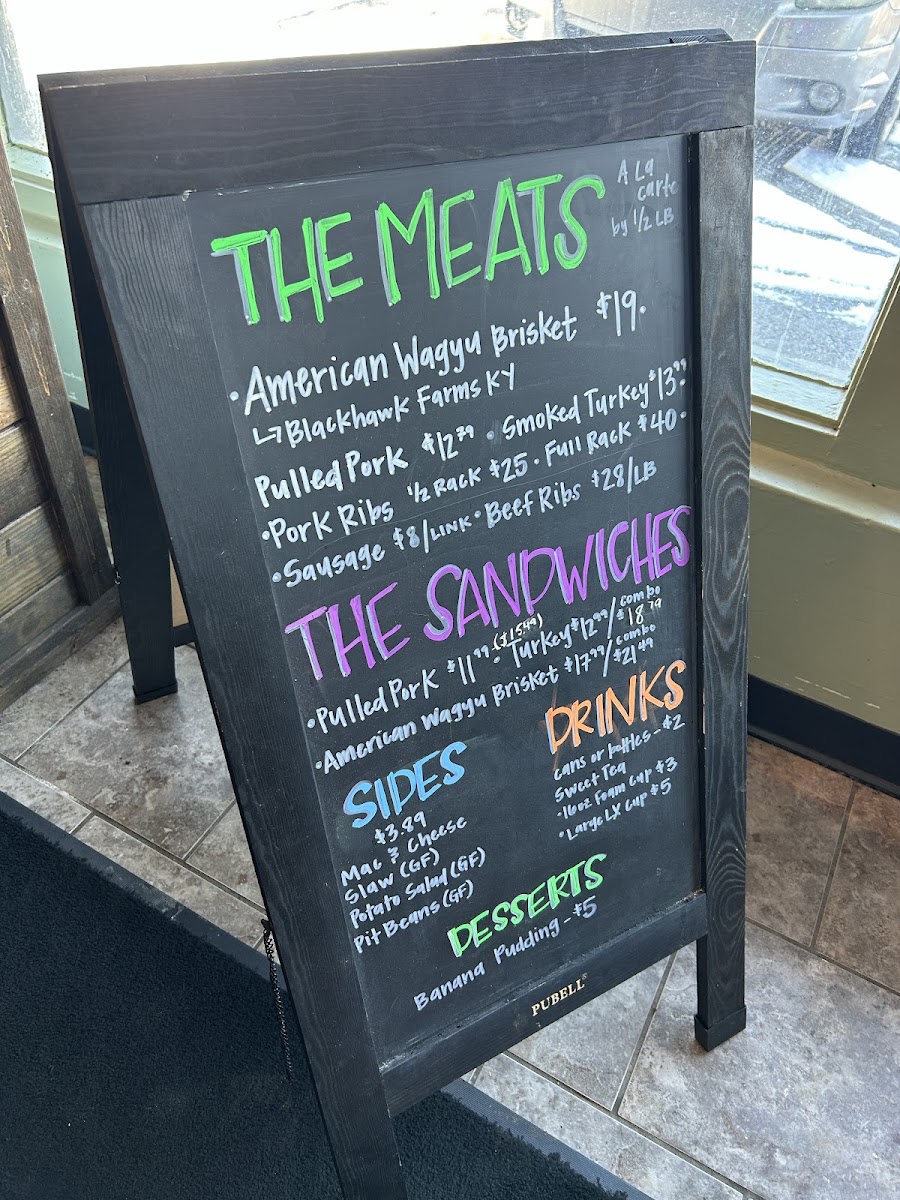 THE MEATS
A La
carte
by 1/2 LB
• American Wagyu Brisket $19.
↳ Blackhawk Farms KY
Pulled Pork $12.79 • Smoked Turkey $13.99
• Pork Ribs 1/2 Rack $25 • Full Rack $40 •
• Sausage $8/LINK • Beef Ribs $28/LB
THE SANDWICHES
• Pulled Pork $11.99 ($15.49) • Turkey $12.99/combo $18.79
• American Wagyu Brisket $17.99/combo $21.49
SIDES
$3.89
Mac & Cheese
Slaw (GF)
Potato Salad (GF)
Pit Beans (GF)
DRINKS
cans or bottles - $2
Sweet Tea
• 16oz Foam Cup $3
• Large LX Cup $5
DESSERTS
Banana Pudding - $5
PUBELL